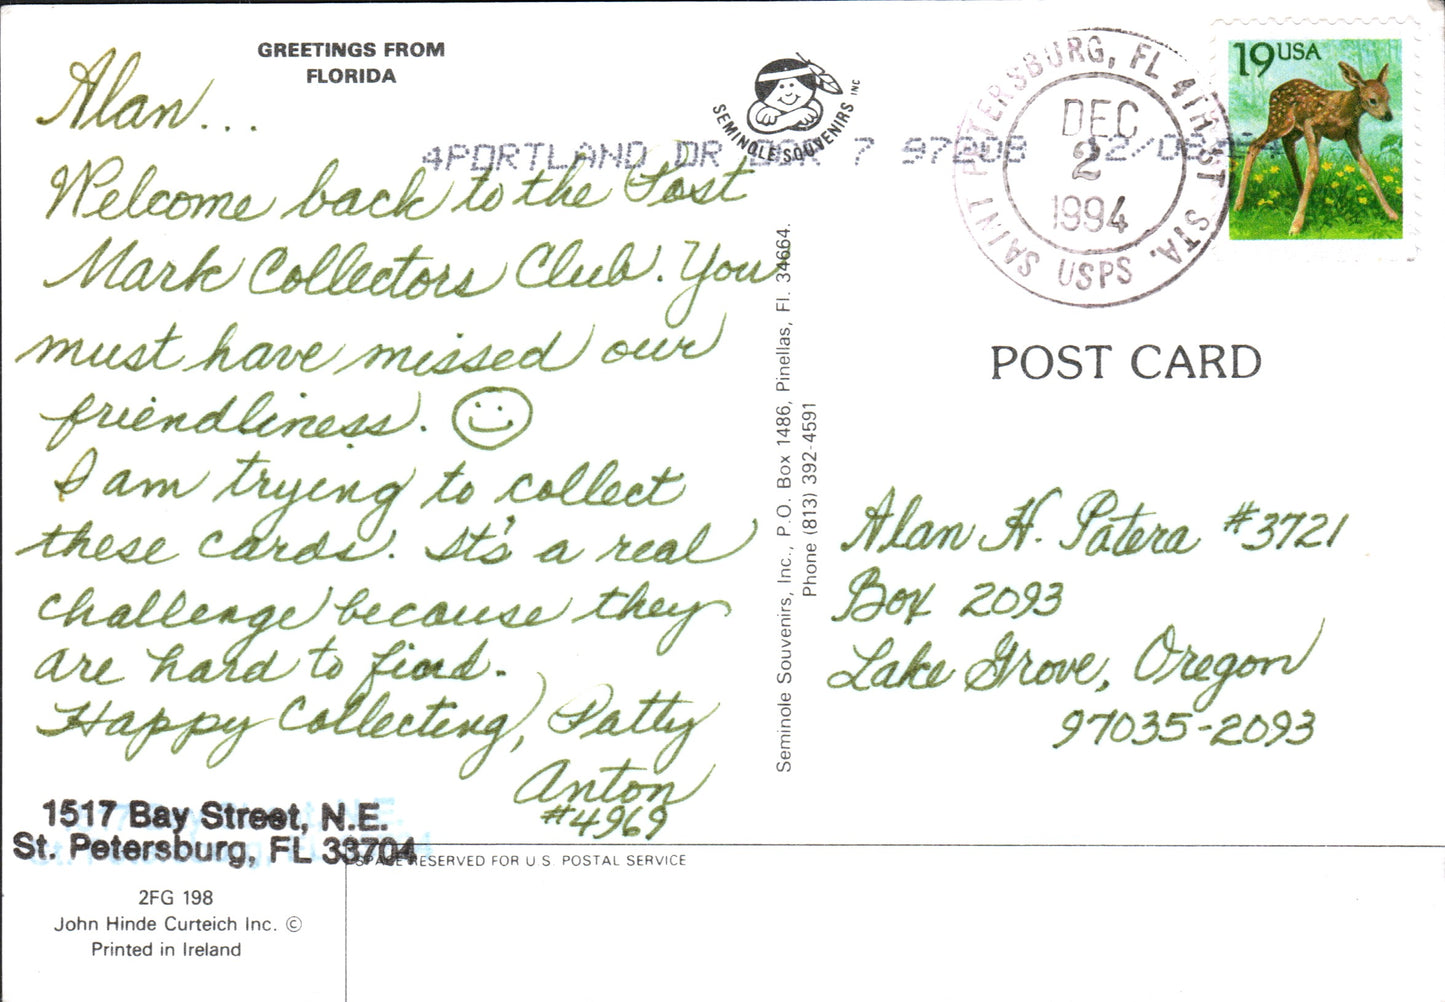 GREETINGS FROM
FLORIDA
Alan...
Welcome back to the Post
Mark Collectors Club. You
must have missed our
friendliness.
I am trying to collect
these cards. It's a real
challenge because they
are hard to find.
Happy Collecting, Patty
Anton
#4969
1517 Bay Street, N.E.
St. Petersburg, FL 33704
2FG 198
John Hinde Curteich Inc. ©
Printed in Ireland
SEMINOLE SOUVENIRS INC
4PORTLAND OR 7 97208
Seminole Souvenirs, Inc., P.O. Box 1486, Pinellas, Fl. 34664.
Phone (813) 392-4591
SAINT PETERSBURG, FL 4TH ST STA.
DEC
2
1994
USPS
19 USA
POST CARD
Alan H. Patera #3721
Box 2093
Lake Grove, Oregon
97035-2093
SPACE RESERVED FOR U.S. POSTAL SERVICE